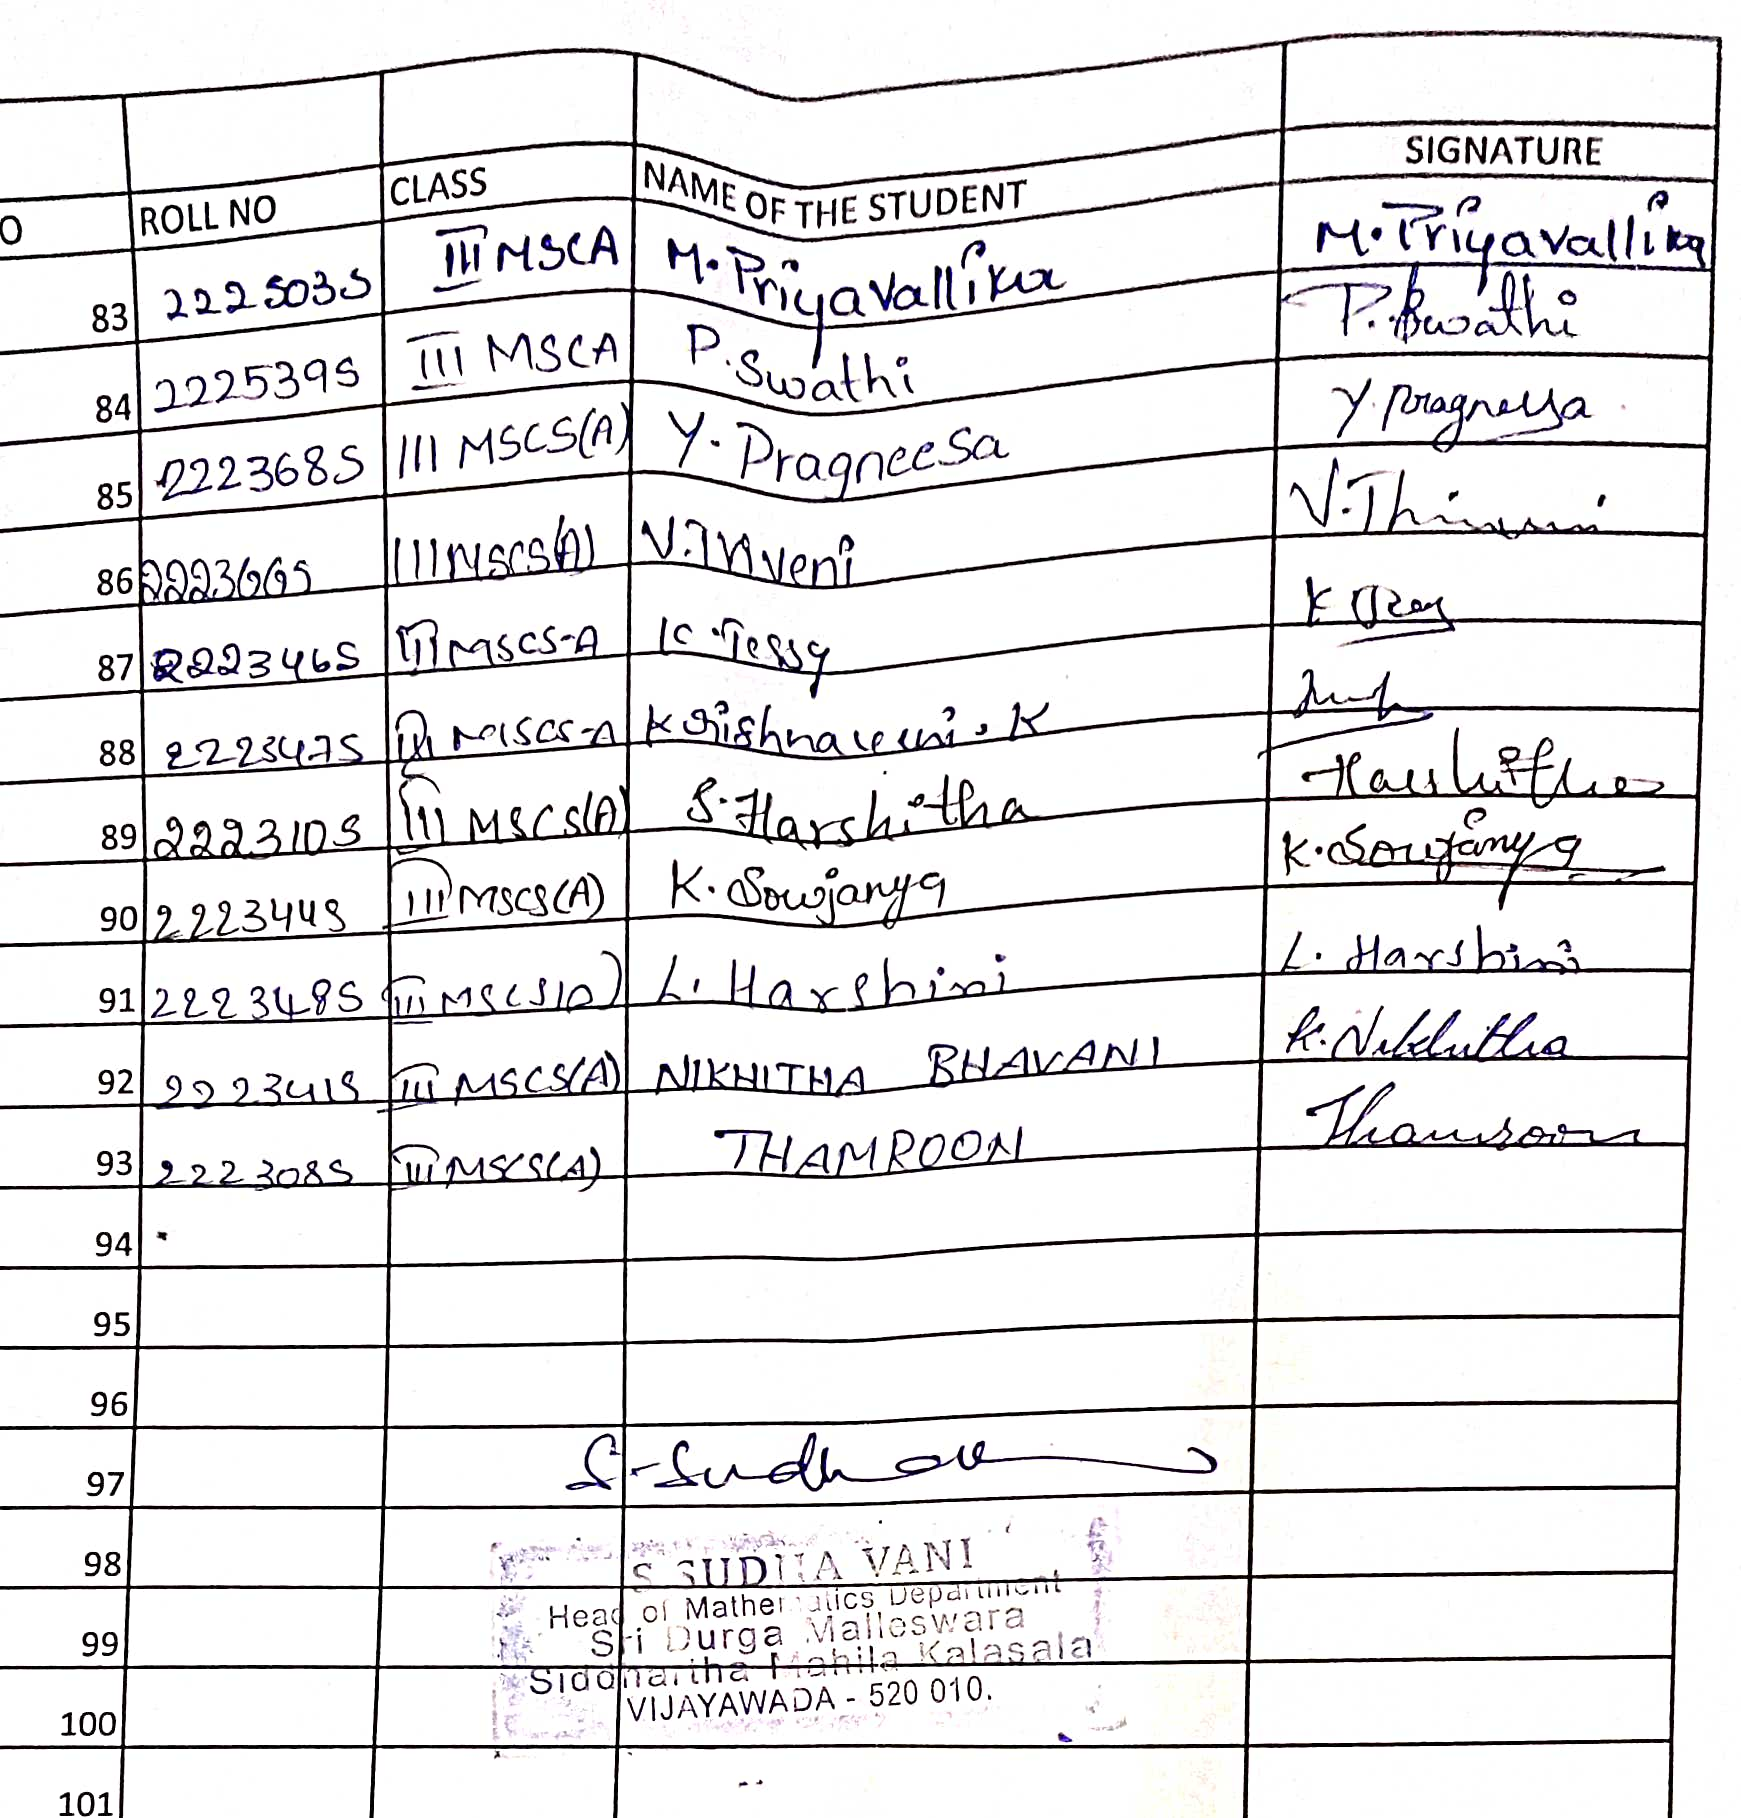 SIGNATURE
O ROLL NO CLASS NAME OF THE STUDENT
83 2225035 III MSCA M. Priyavallika M. Priyavallika
84 222539S III MSCA P. Swathi P. Swathi
85 222368S III MSCS(A) Y. Pragneesa Y. Pragneesa
86 222366S III MSCS(A) V. Triveni V.
87 222346S III MSCS-A K. Tessy K
88 222347S III MSCS-A Krishnaveni. K
89 222310S III MSCS(A) S. Harshitha Harshitha
90 222344S III MSCS(A) K. Sowjanya K. Sowjanya
91 222348S III MSCS(A) L. Harshini L. Harshini
92 222341S III MSCS(A) NIKHITHA BHAVANI K. Nikhitha
93 222308S III MSCS(A) THAMROON Thamroon
94
95
96
97 S. Sudha
98 S SUDHA VANI
Head of Mathematics Department
99 Sri Durga Malleswara
Siddhartha Mahila Kalasala
100 VIJAYAWADA - 520 010.
101